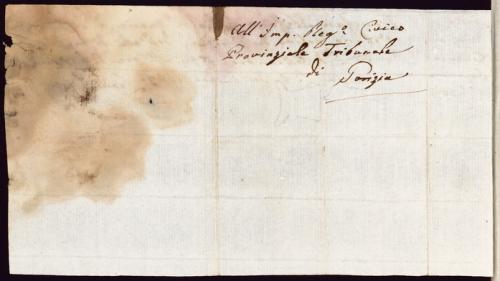 All' Imp. Reg.º Civico
Provinziale Tribunale
di
Gorizia